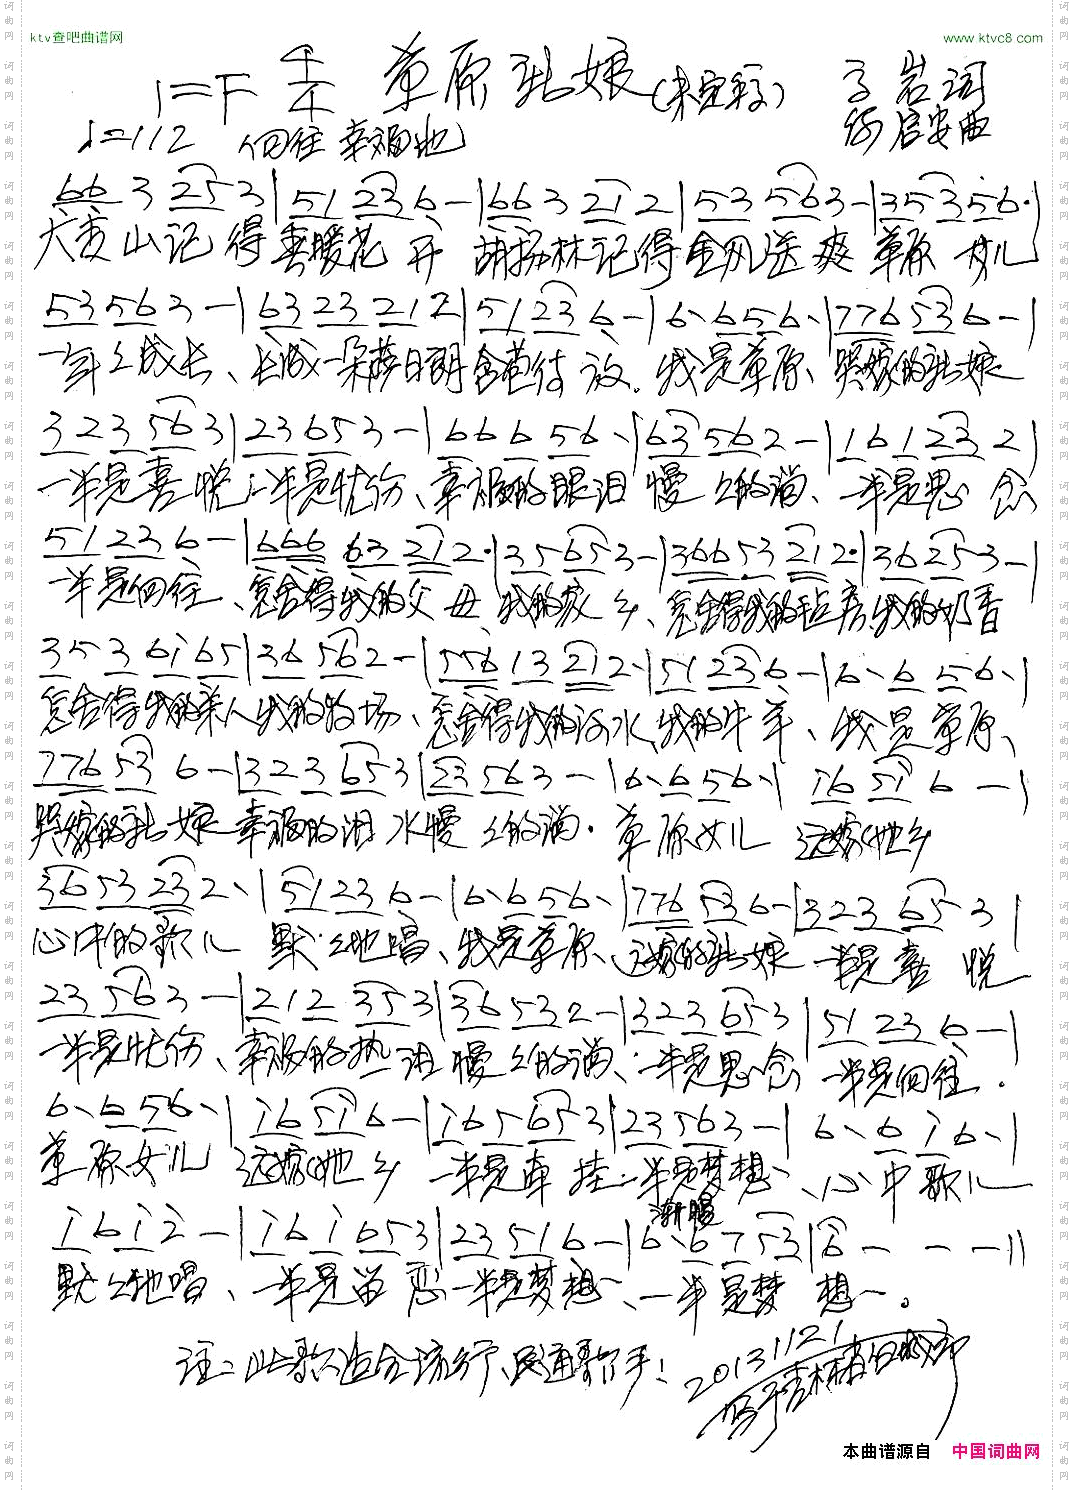 ktv查吧曲谱网
www.ktvc8.com
1=F 4/4 草原新娘(未定稿) 子岩词
♩=112 (向往 幸福地) 何启安曲
66 3 253|51 236-|663 212|53 563-|353 56·|
大青山记得春暖花开 胡杨林记得金风送爽 草原女儿
53563-|6323212|51236-|6·656·|776536-|
一年年成长、长成一朵萨日朗含苞待放。我是草原 哭嫁的新娘
323563|23653-|66656·|63562-|161232|
一半是喜悦 一半是忧伤、幸福的眼泪 慢慢的淌、一半是思念
51236-|66663212·|35653-|36653212·|36253-|
一半是向往、怎舍得我的父母、我的家乡、怎舍得我的毡房、我的奶香
3536165|36562-|55613212·|51236-|6·656·|
怎舍得我的亲人我的牧场、怎舍得我的河水、我的牛羊、我是草原、
776536-|323653|23563-|6·656·|i65i6-|
哭嫁的新娘 幸福的泪水慢慢的淌. 草原女儿 远嫁他乡
3653232·|51236-|6·656·|776536-|323653|
心中的歌儿 默默地唱、我是草原、远嫁的新娘 一半是喜悦
23563-|212353|36532-|323653|51236-|
一半是忧伤、幸福的热泪 慢慢的淌、一半是思念 一半是向往.
6·656·|i65i6-|i65653|23563-|6·6i6·|
草原女儿 远嫁他乡 一半是牵挂 一半是梦想、心中歌儿
渐慢
i6i2-|i6i653|23516-|6·6753|6---‖
默默地唱、一半是留恋 一半是梦想、一半是梦想。
注:此歌适合流行、民通歌手!
20131121
本曲谱源自 中国词曲网